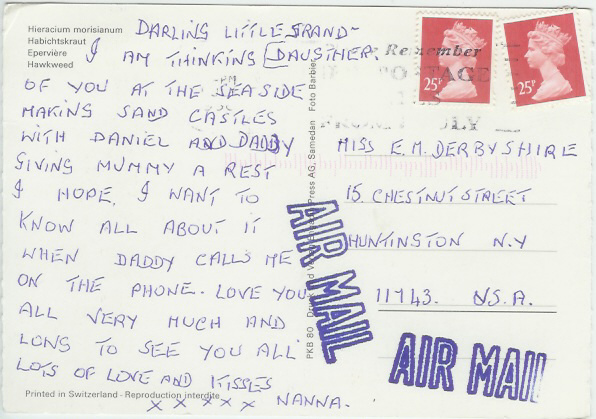 Hieracium morisianum
Habichtskraut
Epervière
Hawkweed
DARLING LITTLE GRAND-
DAUGTHER.
I AM THINKING
OF YOU AT THE SEASIDE
MAKING SAND CASTLES
WITH DANIEL AND DADDY
GIVING MUMMY A REST
I HOPE. I WANT TO
KNOW ALL ABOUT IT
WHEN DADDY CALLS ME
ON THE PHONE. LOVE YOU
ALL VERY MUCH AND
LONG TO SEE YOU ALL
LOTS OF LOVE AND KISSES
X X X X X NANNA.
Printed in Switzerland - Reproduction interdite
PKB 80
Press AG, Samedan Foto Barbier
25P
25P
Remember
MISS E.M. DERBYSHIRE
15 CHESTNUT STREET
HUNTINGTON N.Y
11743. U.S.A.
AIR MAIL
AIR MAIL